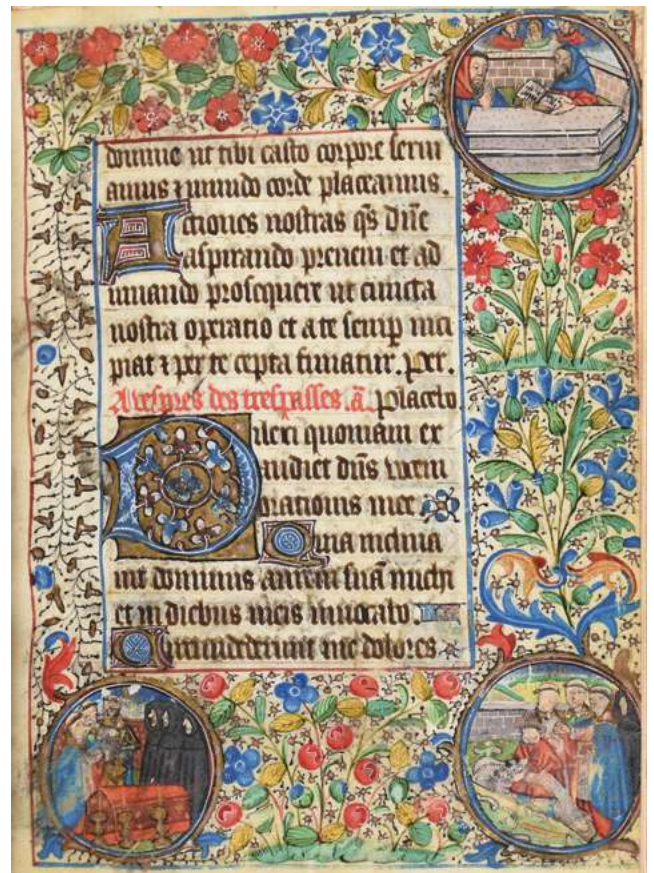 domine ut tibi casto corpore serui
amus ⁊ mundo corde placeamus.
Actiones nostras q̄s dñe
aspirando preueni et ad
iuuando prosequere ut cuncta
nostra operatio et a te semp inci
piat ⁊ per te cepta finiatur. per.
A vespres des trespasses. ā. placebo.
Dilexi quoniam ex
audiet dn̄s vocem
orationis mee
Quia inclina
uit dominus aurem suā michi
et in diebus meis inuocabo.
Circumdederunt me dolores